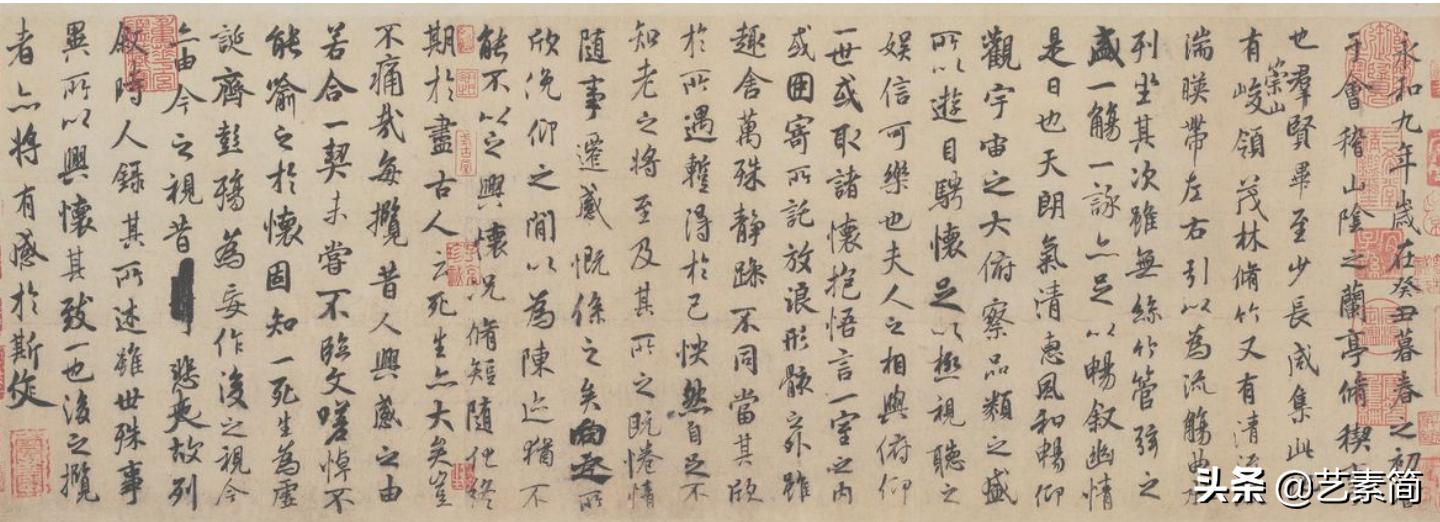 永和九年歲在癸丑暮春之初會
于會稽山陰之蘭亭脩稧事
也羣賢畢至少長咸集此
有崇山峻領茂林脩竹又有清流
湍暎帶左右引以為流觴曲水
列坐其次雖無絲竹管弦之
盛一觴一詠亦足以暢敘幽情
是日也天朗氣清惠風和暢仰
觀宇宙之大俯察品類之盛
所以遊目騁懷足以極視聽之
娛信可樂也夫人之相與俯仰
一世或取諸懷抱悟言一室之內
或因寄所託放浪形骸之外雖
趣舍萬殊靜躁不同當其欣
於所遇蹔得於己怏然自足不
知老之將至及其所之既惓情
隨事遷感慨係之矣向之所
欣俛仰之閒以為陳迹猶不
能不以之興懷況脩短隨化終
期於盡古人云死生亦大矣豈
不痛哉每攬昔人興感之由
若合一契未嘗不臨文嗟悼不
能喻之於懷固知一死生為虛
誕齊彭殤為妄作後之視今
亦由今之視昔悲夫故列
敘時人錄其所述雖世殊事
異所以興懷其致一也後之攬
者亦將有感於斯文
头条 @艺素简